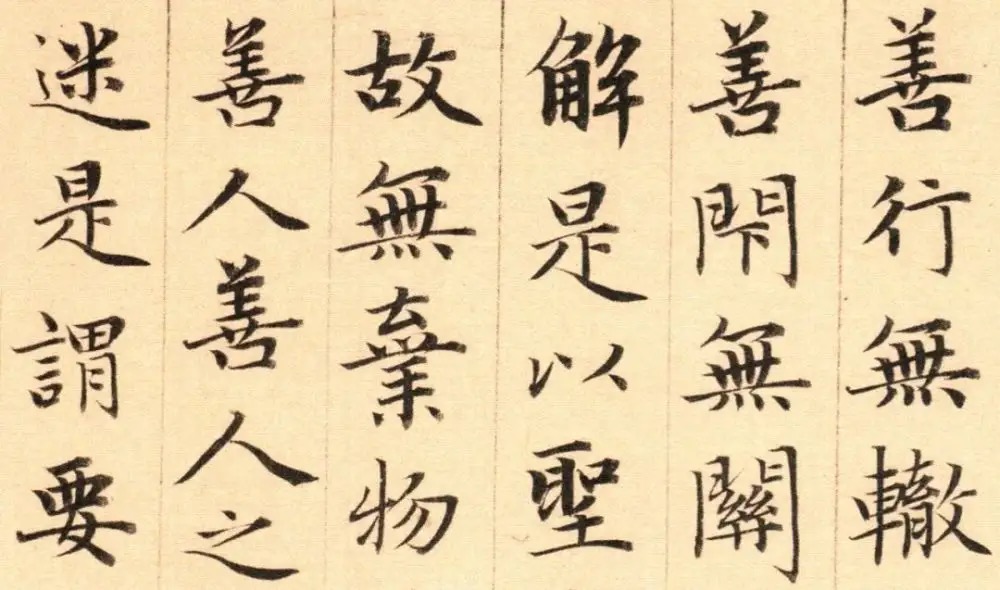 善行無轍
善閇無關
解是以聖
故無棄物
善人善人之
迷是謂要